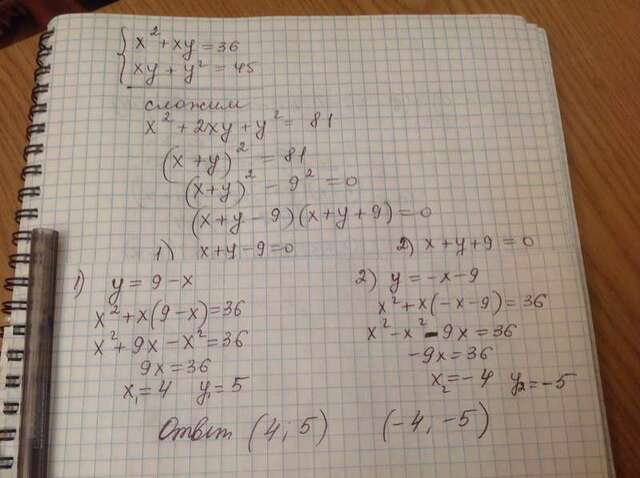 x² + xy = 36
xy + y² = 45
сложим
x² + 2xy + y² = 81
(x + y)² = 81
(x+y)² - 9² = 0
(x+y-9)(x+y+9) = 0
1) x+y-9=0 2) x+y+9=0
1) y = 9-x
x² + x(9-x) = 36
x² + 9x - x² = 36
9x = 36
x₁ = 4 y₁ = 5
2) y = -x-9
x² + x(-x-9) = 36
x² - x² - 9x = 36
-9x = 36
x₂ = -4 y₂ = -5
Ответ (4; 5) (-4, -5)